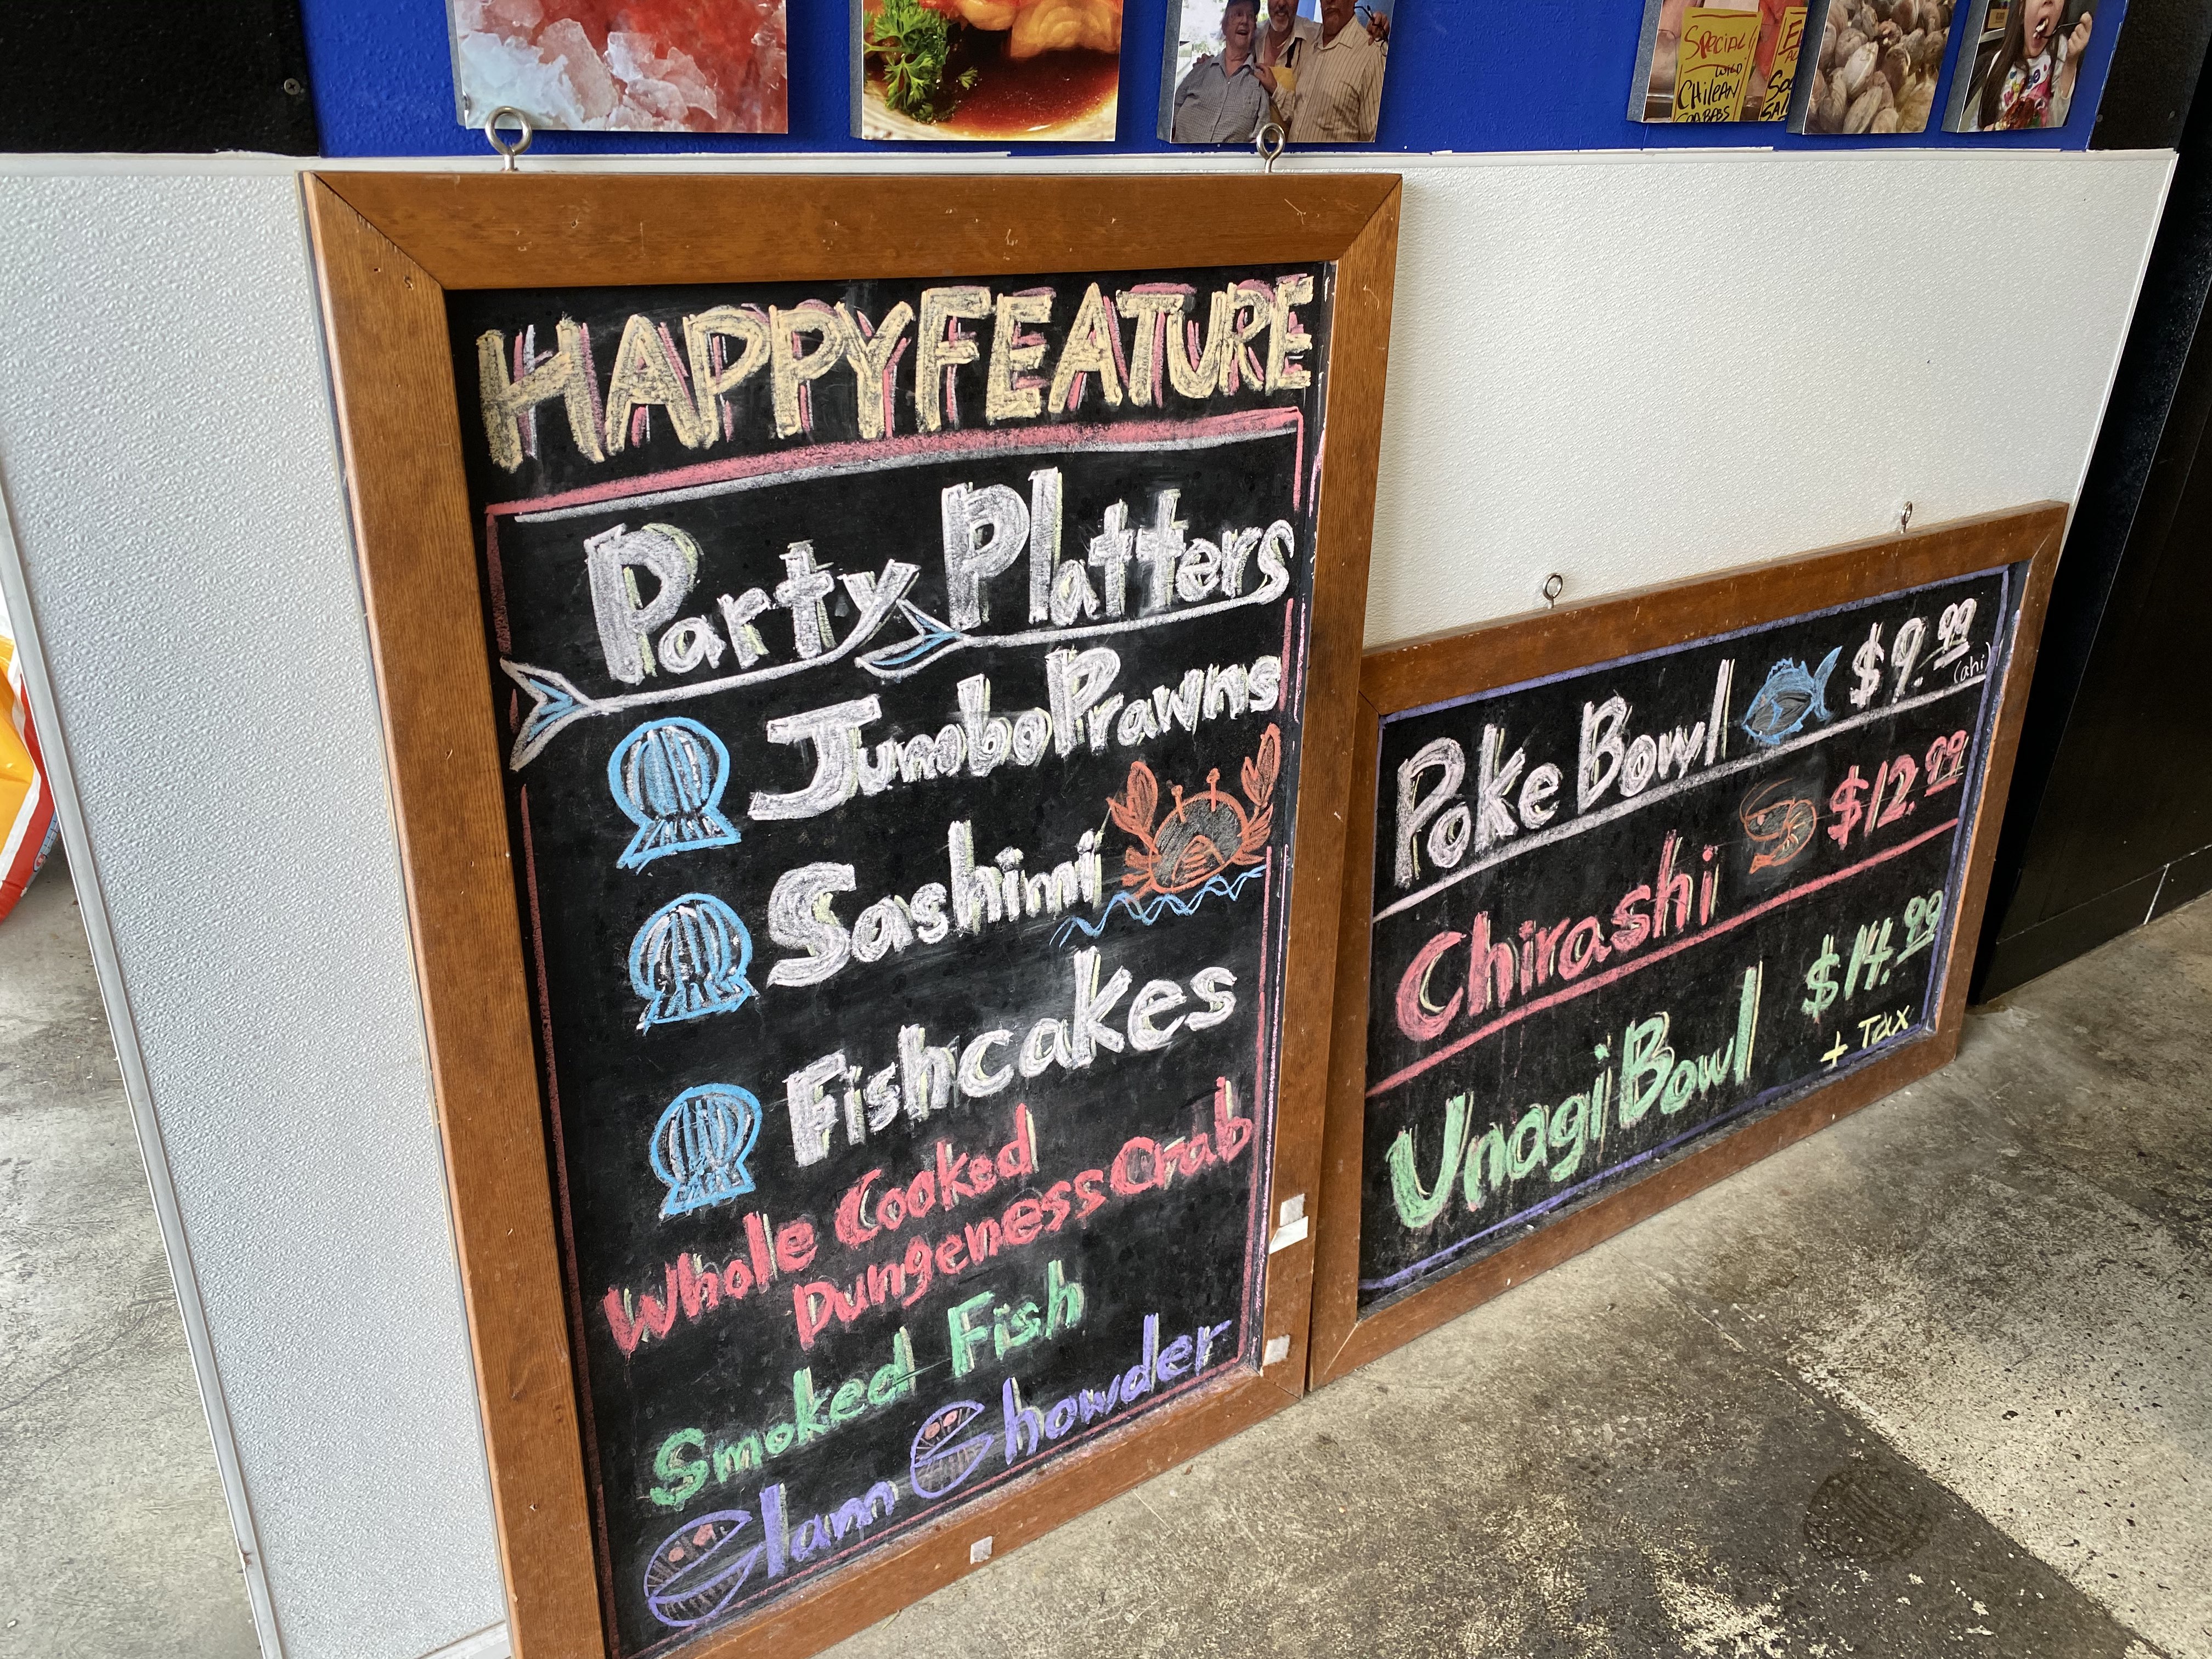 SPECIAL
WILD
CHILEAN
HAPPY FEATURE
Party Platters
Jumbo Prawns
Sashimi
Fishcakes
Whole Cooked
Dungeness Crab
Smoked Fish
Clam Chowder
Poke Bowl $9.99
(ahi)
Chirashi $12.99
Unagi Bowl $14.99
+ Tax